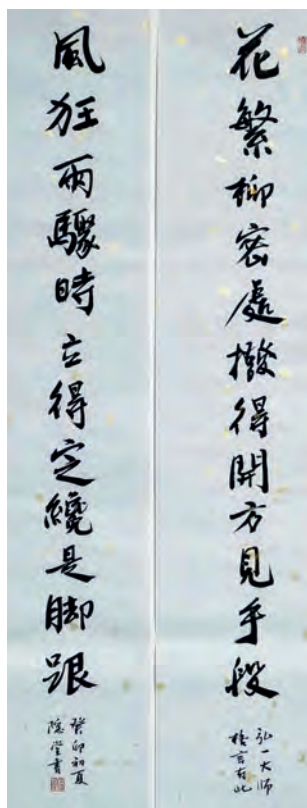 花繁柳密處撥得開方見手段
弘一大师
格言有此
風狂雨驟時立得定纔是脚跟
癸卯初夏
隐堂書